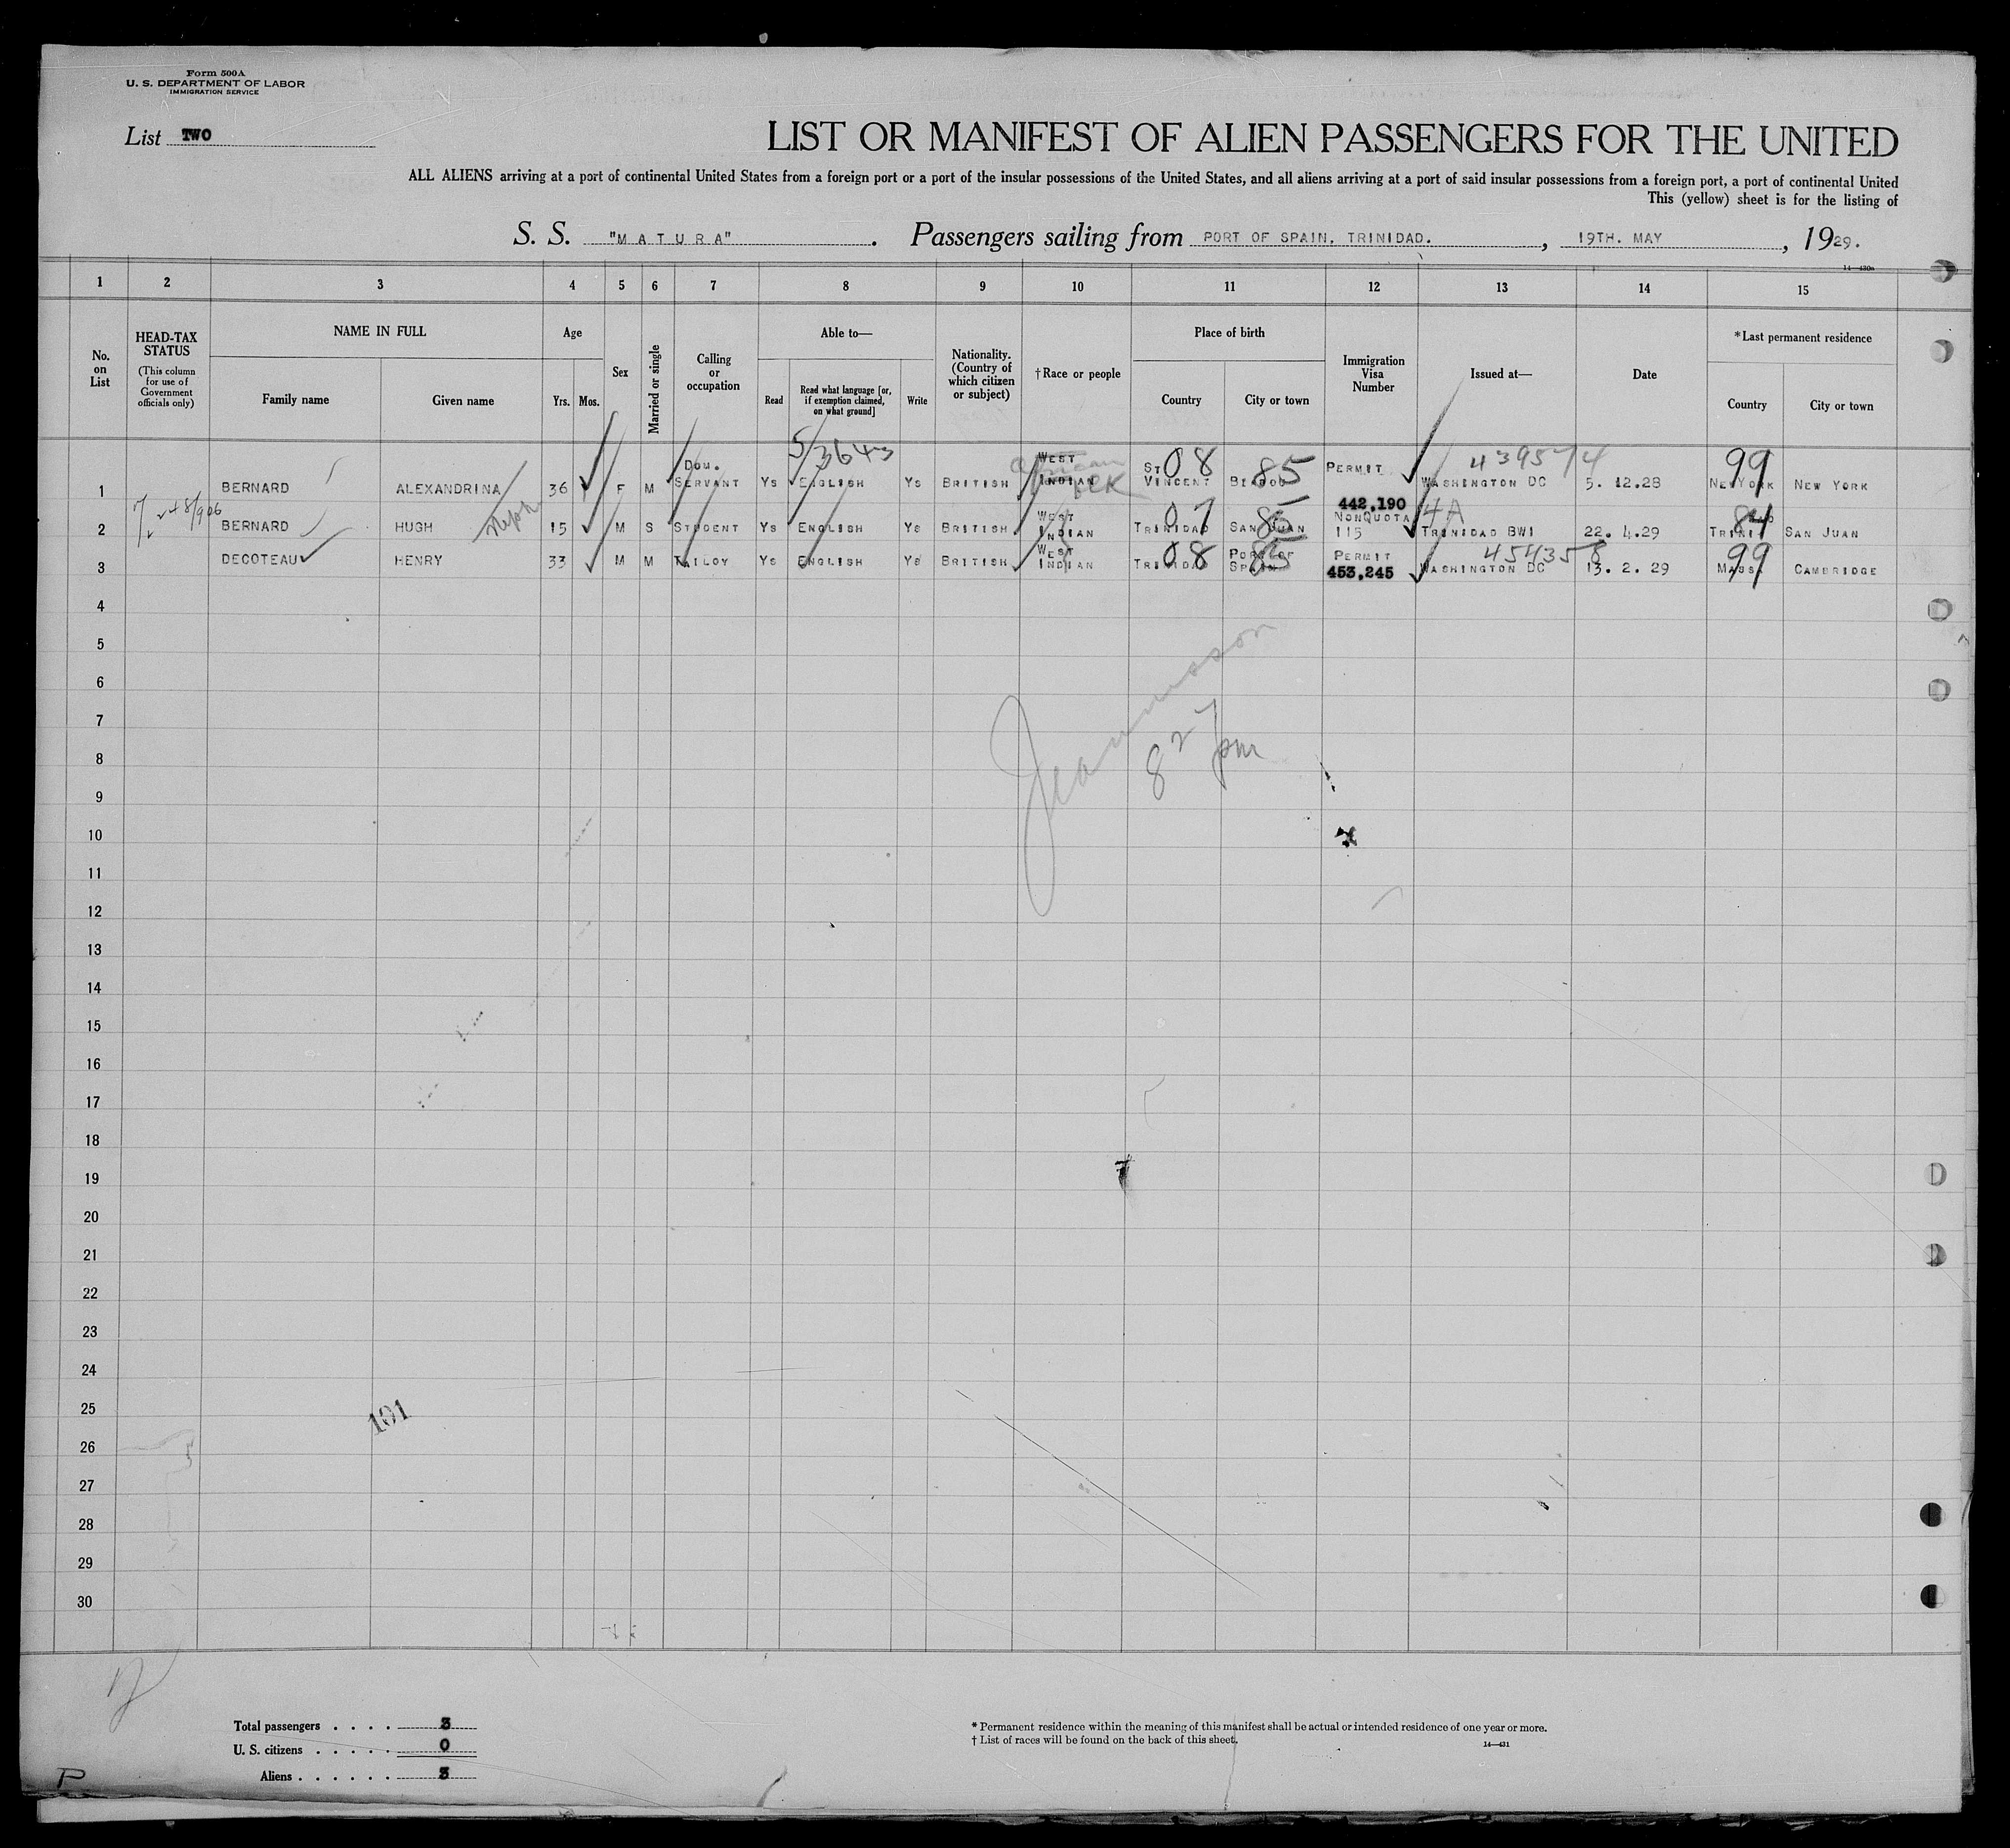 Form 500A
U. S. DEPARTMENT OF LABOR
IMMIGRATION SERVICE
List TWO
LIST OR MANIFEST OF ALIEN PASSENGERS FOR THE UNITED
ALL ALIENS arriving at a port of continental United States from a foreign port or a port of the insular possessions of the United States, and all aliens arriving at a port of said insular possessions from a foreign port, a port of continental United
This (yellow) sheet is for the listing of
S. S. "MATURA". Passengers sailing from PORT OF SPAIN, TRINIDAD., 19TH. MAY, 1929.
14—430a
1 2 3 4 5 6 7 8 9 10 11 12 13 14 15
No. on List
HEAD-TAX STATUS
(This column for use of Government officials only)
NAME IN FULL
Family name Given name
Age
Yrs. Mos.
Sex
Married or single
Calling or occupation
Able to—
Read
Read what language [or, if exemption claimed, on what ground]
Write
Nationality. (Country of which citizen or subject)
†Race or people
Place of birth
Country City or town
Immigration Visa Number
Issued at—
Date
*Last permanent residence
Country City or town
5/3643
1 BERNARD ALEXANDRINA 36 F M DOM. SERVANT YS ENGLISH YS BRITISH WEST INDIAN African ST VINCENT 08 85 PERMIT 442,190 WASHINGTON DC 439574 5. 12.28 NEW YORK 99 NEW YORK
2 BERNARD HUGH neph 15 M S STUDENT YS ENGLISH YS BRITISH WEST INDIAN TRINIDAD 07 SAN JUAN 85 NONQUOTA 115 4A TRINIDAD BWI 22. 4.29 84 SAN JUAN
3 DECOTEAU HENRY 33 M M TAILOY YS ENGLISH YS BRITISH WEST INDIAN TRINIDAD 08 PORT OF SPAIN 85 PERMIT 453,245 WASHINGTON DC 454358 13. 2. 29 MASS. 99 CAMBRIDGE
4
5
6
7
8
9
10
11
12
13
14
15
16
17
18
19
20
21
22
23
24
25
26
27
28
29
30
8 27 pm
101
Total passengers . . . . 3
U. S. citizens . . . . . 0
Aliens . . . . . . 3
* Permanent residence within the meaning of this manifest shall be actual or intended residence of one year or more.
† List of races will be found on the back of this sheet.
14—431
P